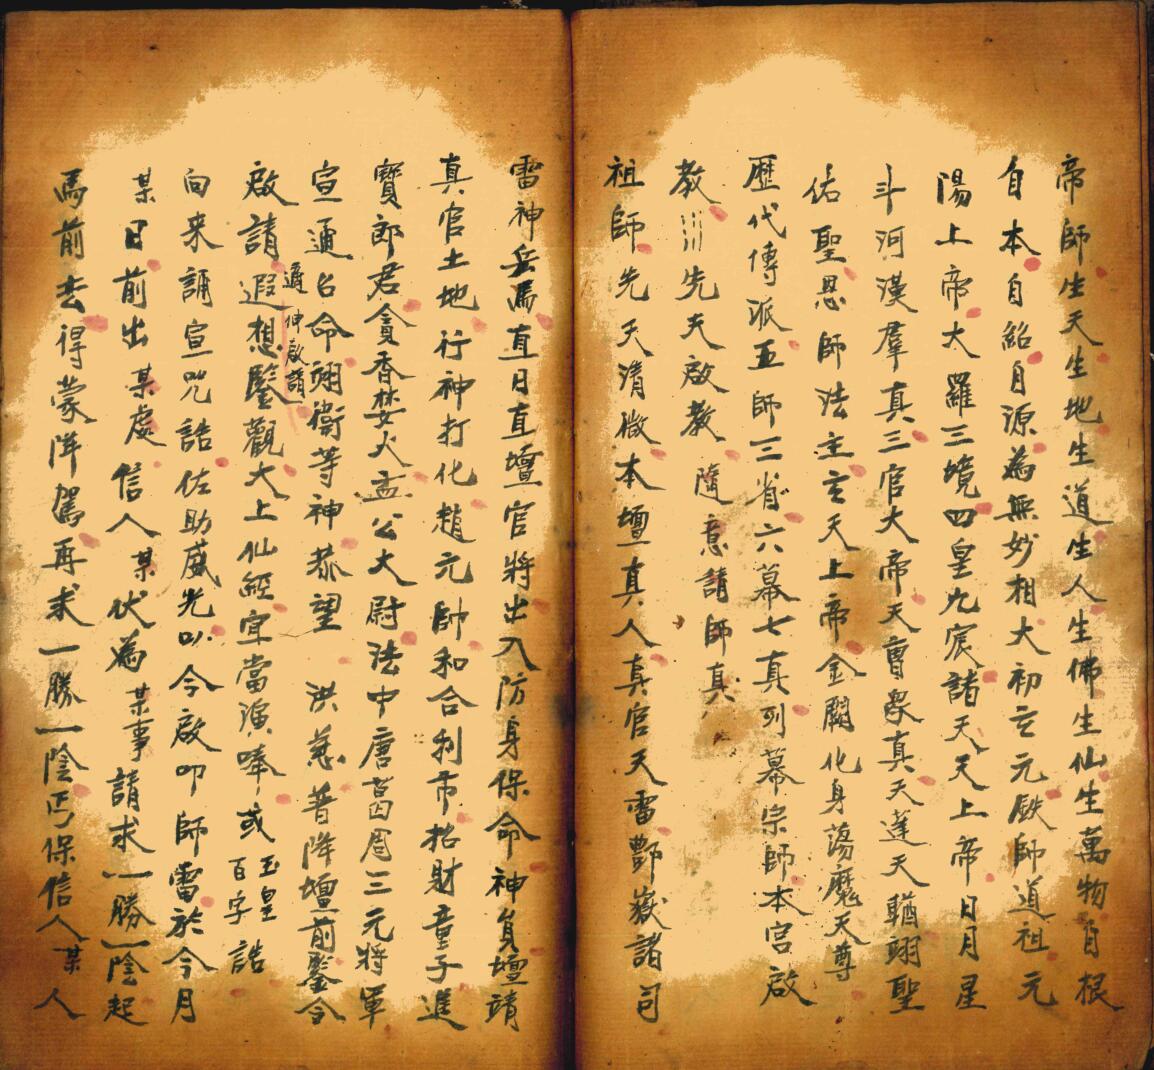 帝師生天生地生道生人生佛生仙生萬物自根
自本自紹自源為無妙相大初玄元鉄師道祖元
陽上帝大羅三境四皇九宸諸天天上帝日月星
斗河漢羣真三官大帝天曹衆真天蓬天猷翊聖
佑聖恩師法主玄天上帝金闕化身蕩魔天尊
歷代傳派五師三省六幕七真列幕宗師本宮啟
教先天啟教隨意請師真
祖師先天清微本壇真人真官天雷酆嶽諸司
雷神岳馮直日直壇官將出入防身保命神負壇靖
真官土地行神打化趙元帥和合利市招財童子進
寶郎君貪香婪火孟公大尉法中唐葛周三元將軍
宣通召命翊衞等神恭望洪慈普降壇前鑒令
啟請遐想鑒觀大上仙經宜當演奉或玉皇百字誥
適伸啟請
向来誦宣咒誥佐助威光以今啟叩師雷於今月
某日前出某處信人某伏為某事請求一勝一陰起
馬前去得蒙降駕再求一勝一陰丐保信人某人